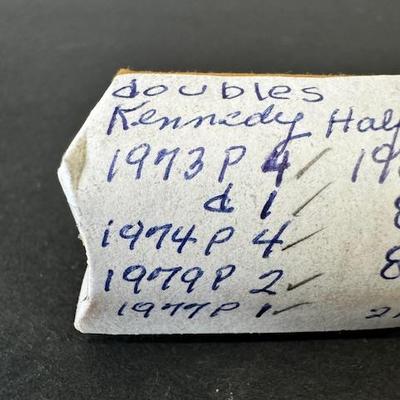 doubles
Kennedy Half
1973 P 4 ✓ 19
d 1 ✓ 8
1974 P 4 ✓
1979 P 2 ✓ 8
1977 P 1 ✓ 2